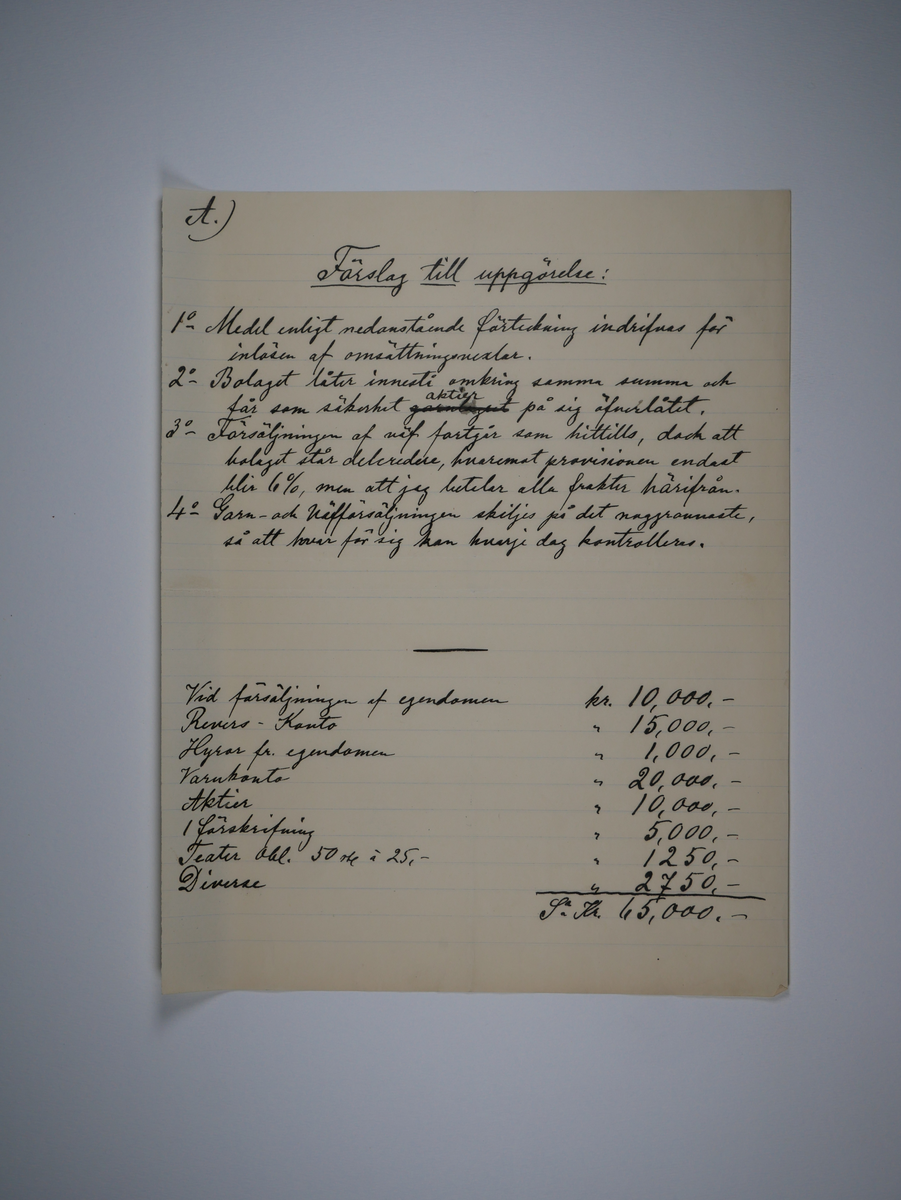 A.)
Förslag till uppgörelse:
1º- Medel enligt nedanstående förteckning indrifvas för
inlösen af omsättningsvexlar.
2º- Bolaget låter innestå omkring samma summa och
aktier
får som säkerhet garnlagret på sig öfverlåtet.
3º- Försäljningen af väf fortgår som hittills, dock att
bolaget står delcredere, hvaremot provisionen endast
blir 6%, men att jag betalar alla frakter härifrån.
4º- Garn- och Väfförsäljningen skiljes på det noggrannaste,
så att hvar för sig kan hvarje dag kontrolleras.
Vid försäljningen af egendomen kr. 10,000.-
Revers - Konto " 15,000.-
Hyror fr. egendomen " 1,000.-
Varukonto " 20,000.-
Aktier " 10,000.-
1 förskrifning " 5,000.-
Teater Obl. 50 st. à 25,- " 1250.-
Diverse " 2750.-
S:a Kr. 65,000.-